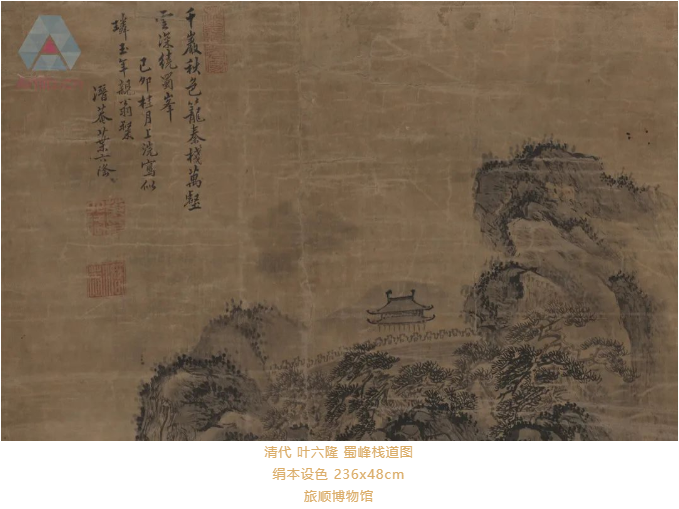 千巖秋色籠秦棧萬壑
雲深繞蜀峯
己卯桂月上浣寫似
玉年親翁
葉六隆
清代 叶六隆 蜀峰栈道图
绢本设色 236x48cm
旅顺博物馆